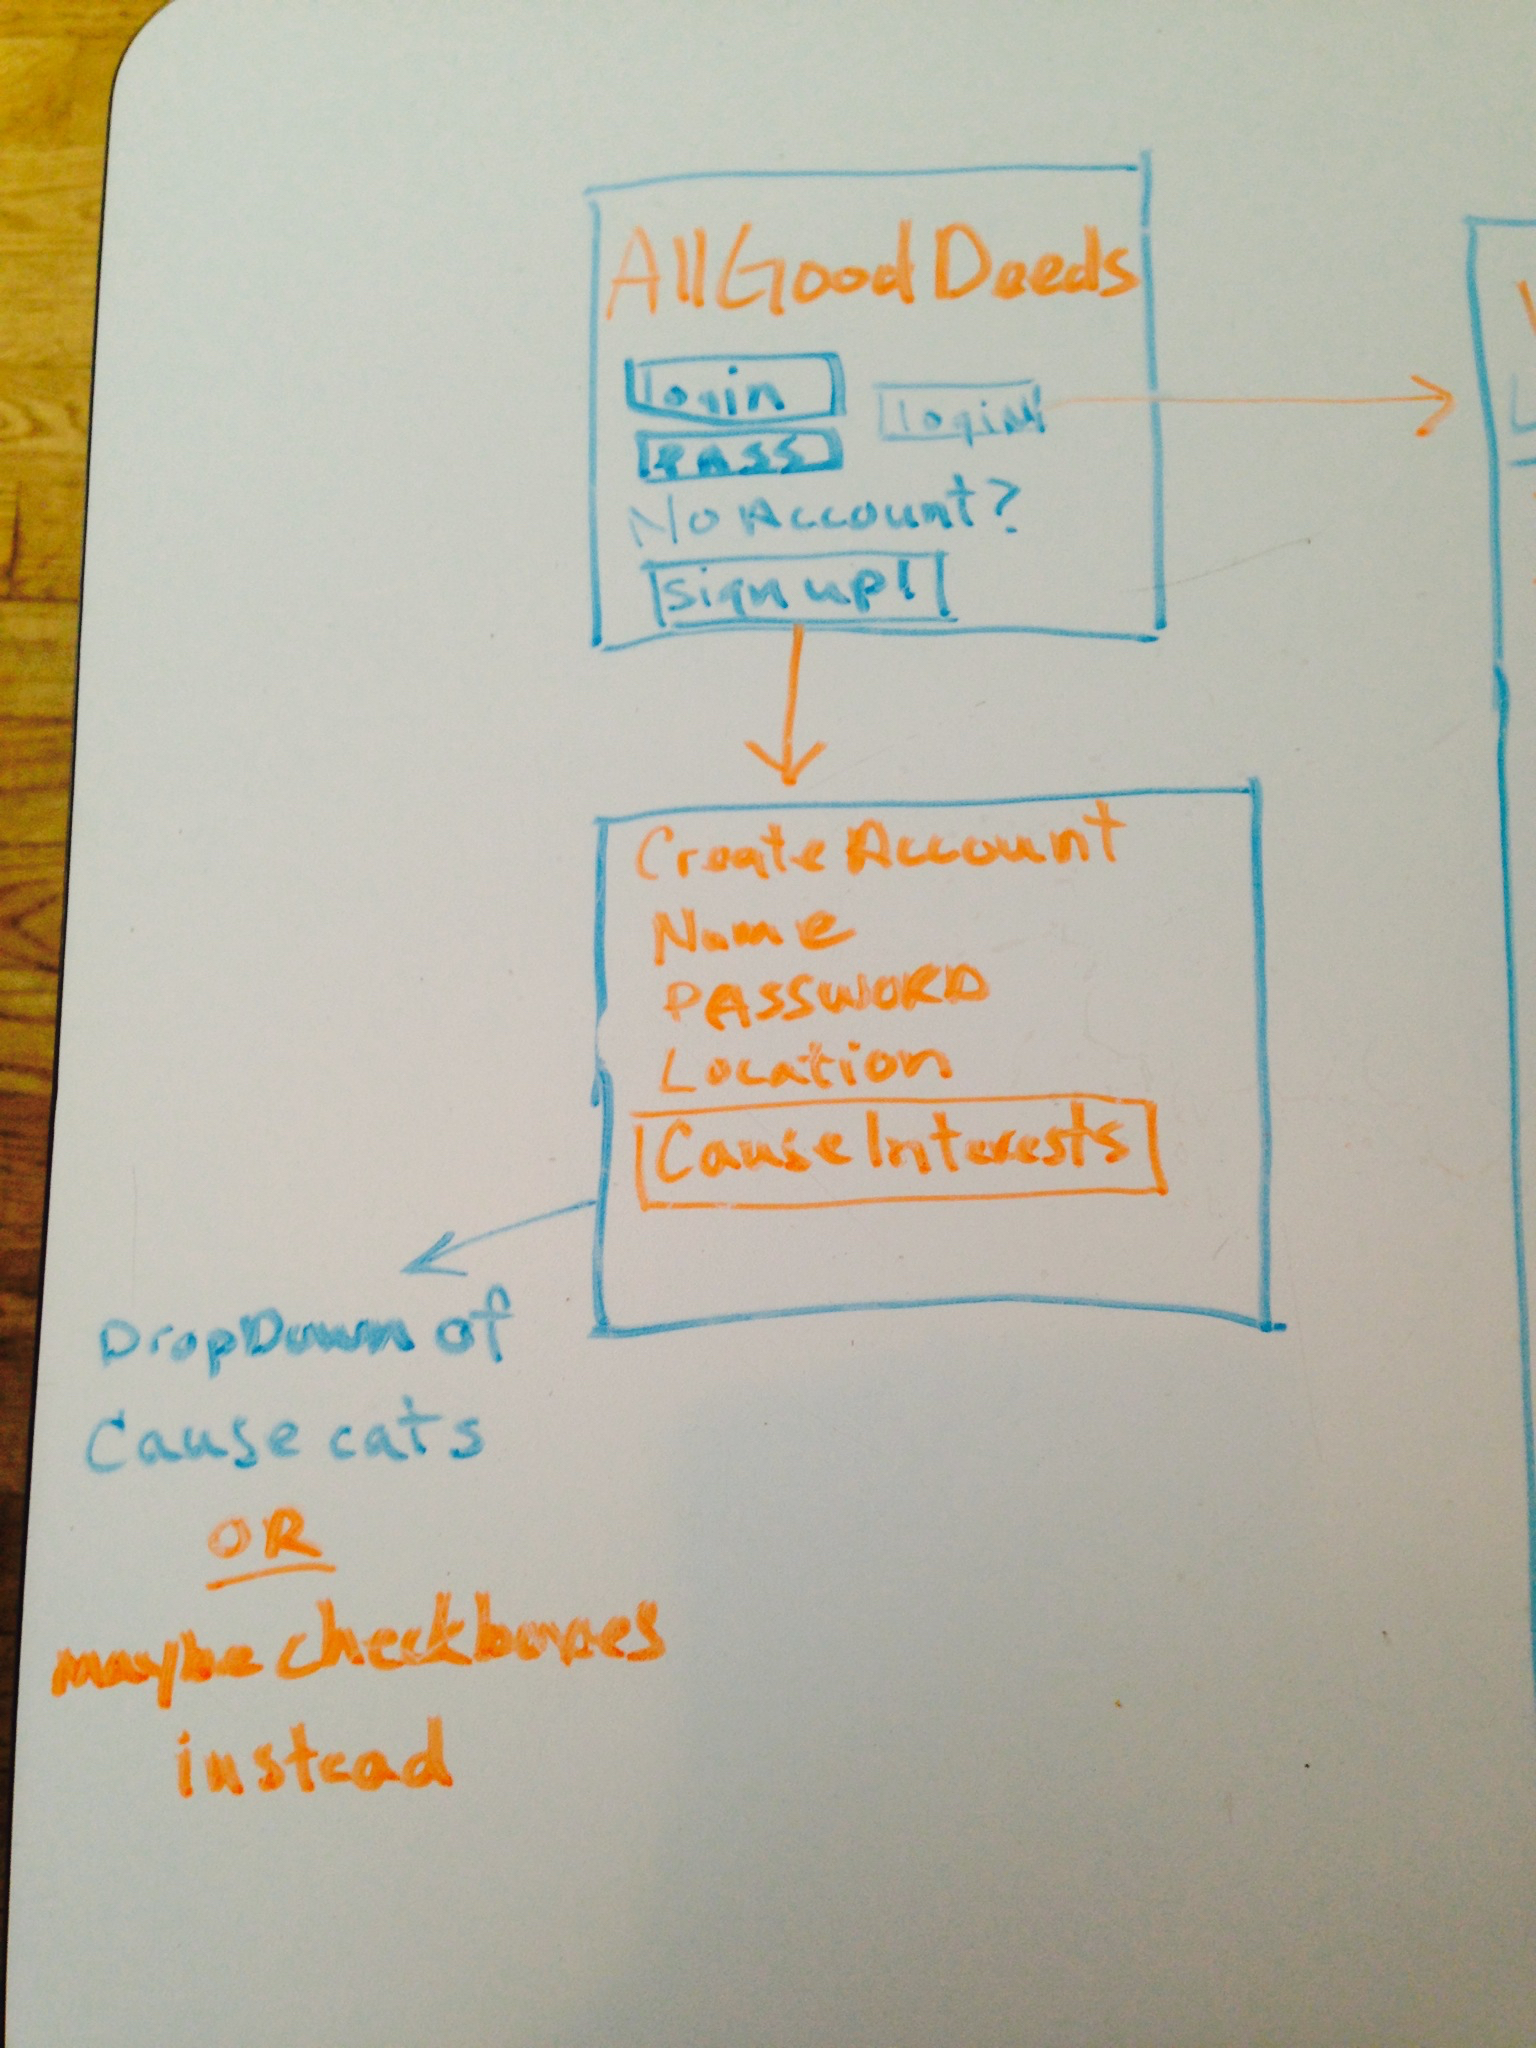 AllGoodDeeds
login
login
pass
No Account?
sign up!
Create Account
Name
PASSWORD
Location
Cause Interests
DropDown of
Cause cats
OR
maybe checkboxes
instead